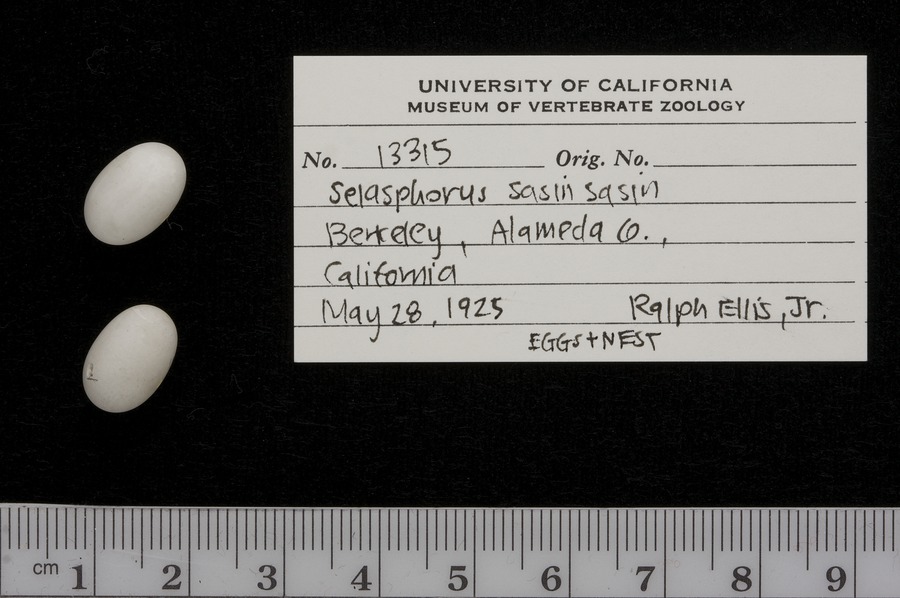 UNIVERSITY OF CALIFORNIA
MUSEUM OF VERTEBRATE ZOOLOGY
No. 13315 Orig. No.
Selasphorus sasin sasin
Berkeley, Alameda Co.,
California
May 28, 1925 Ralph Ellis, Jr.
EGGS + NEST
cm 1 2 3 4 5 6 7 8 9